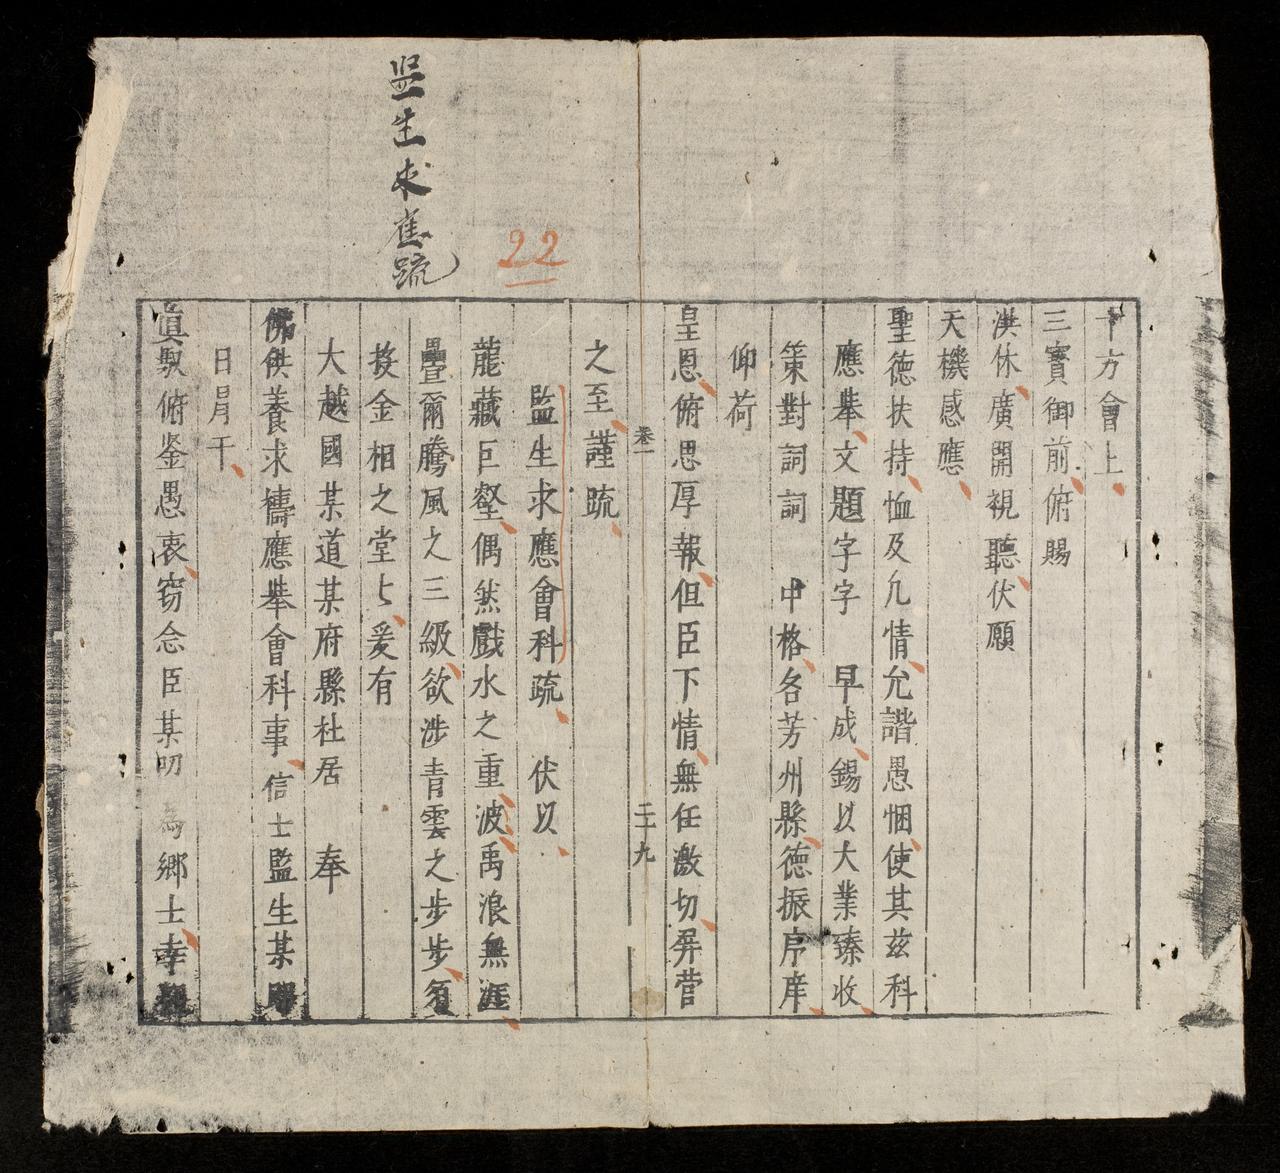 十方會上
三寳御前俯賜
洪休廣開視聽伏願
天機感應
聖德扶持恤及凢情允諧愚悃使其兹科
應舉文題字字 早成錫以大業臻收
策對詞詞 中格各芳州縣德振序庠
仰荷
皇恩俯思厚報但臣下情無任激切屏營
之至謹疏
卷一
二十九
監生求應會科疏 伏以
龍藏巨壑偶然戲水之重波禹浪無涯
疊爾騰風之三級欲涉青雲之步步須
投金相之堂匕爰有
大越國某道某府縣社居 奉
佛供養求禱應舉會科事信士監生某
日月干
眞馭俯鉴愚衷窃念臣某叨 爲鄉士幸
监生求應疏
22